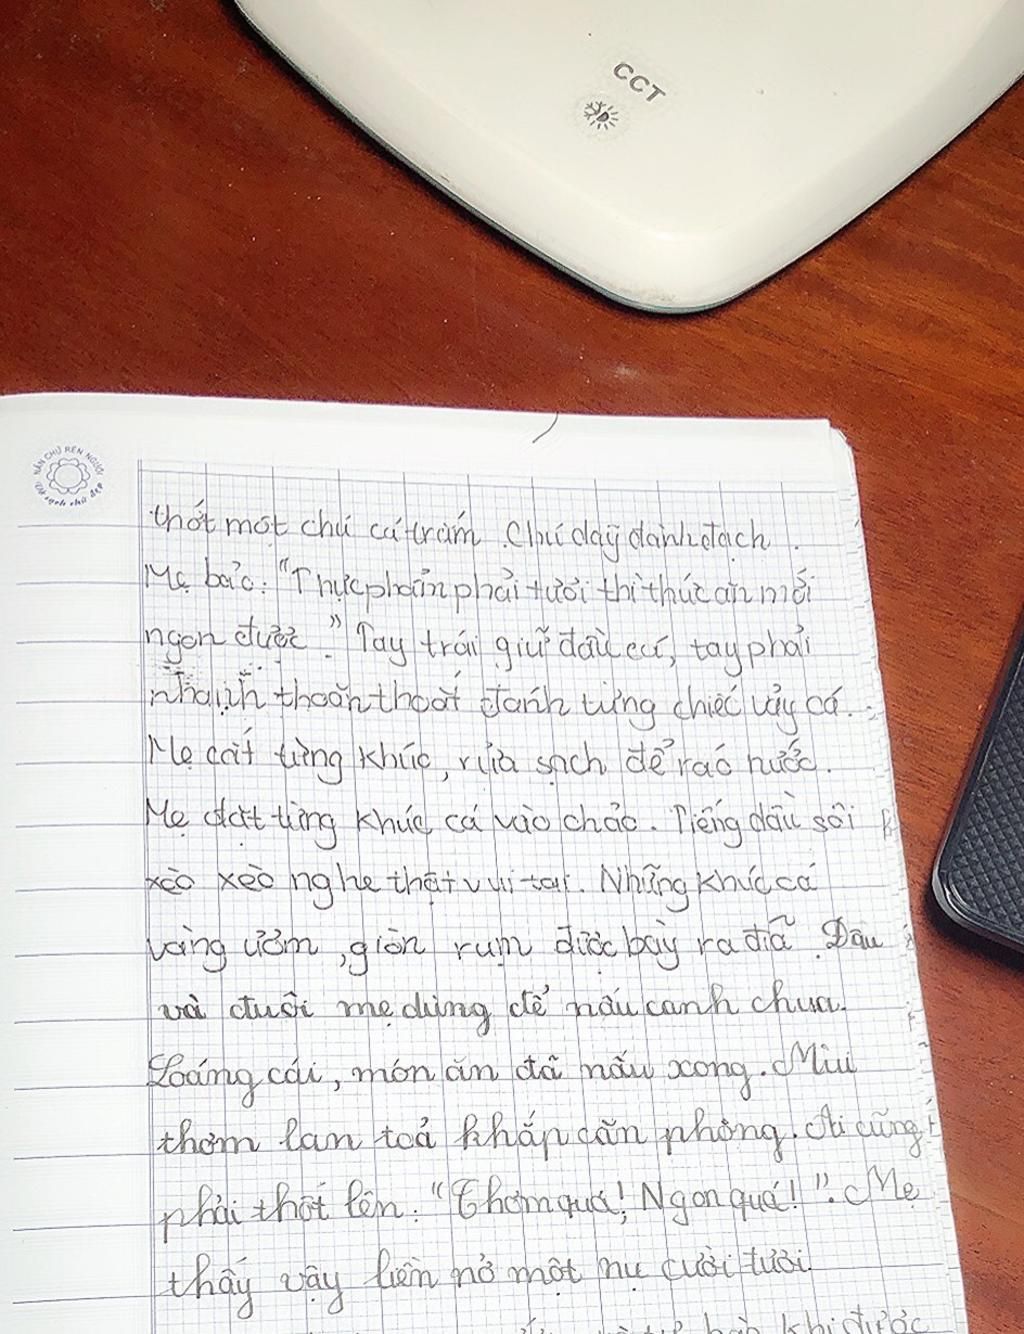 CCT
NẮN CHỮ RÈN NGƯỜI
Vở sạch chữ đẹp
thớt một chú cá trắm. Chú dãy dành đạch.
Mẹ bảo: "Thực phẩm phải tươi thì thức ăn mới
ngon được." Tay trái giữ đầu cá, tay phải
thoăn thoắt đánh từng chiếc vảy cá.
Mẹ cắt từng khúc, rửa sạch để ráo nước.
Mẹ đặt từng khúc cá vào chảo. Tiếng dầu sôi
xèo xèo nghe thật vui tai. Những khúc cá
vàng ươm, giòn rụm được bày ra đĩa. Đầu
và đuôi mẹ dùng để nấu canh chua.
Loáng cái, món ăn đã nấu xong. Mùi
thơm lan toả khắp căn phòng. Ai cũng
phải thốt lên: "Thơm quá! Ngon quá!". Mẹ
thấy vậy liền nở một nụ cười tươi.
khi được